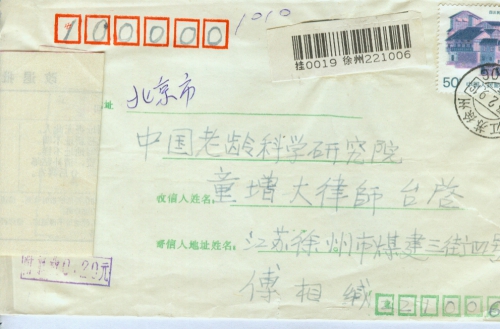 100000
1010
挂0019 徐州221006
50
江苏徐州
址 北京市
中国老龄科学研究院
收信人姓名: 童增大律師 台啓
寄信人地址姓名: 江苏徐州市煤建三街四号
傅相 缄
221000